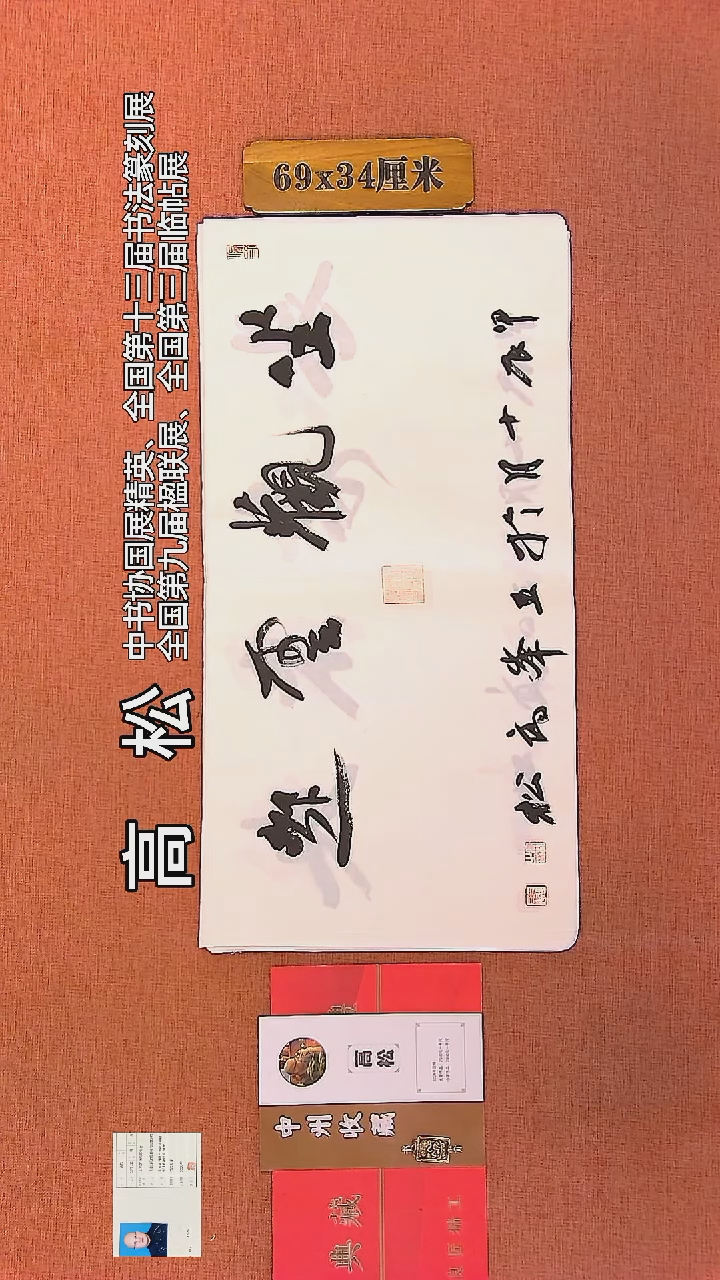 高 松
中书协国展精英、全国第十三届书法篆刻展
全国第九届楹联展、全国第三届临帖展
69x34厘米
坐觀雲起
甲辰十月於五峯高松
高松
中州收藏
典藏